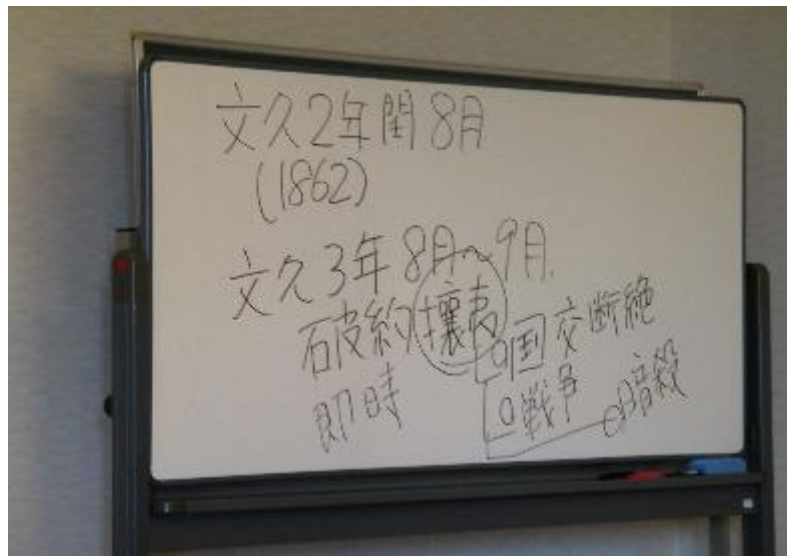 文久2年閏8月
(1862)
文久3年8月~9月
破約攘夷
即時
○国交断絶
○戦争
○暗殺